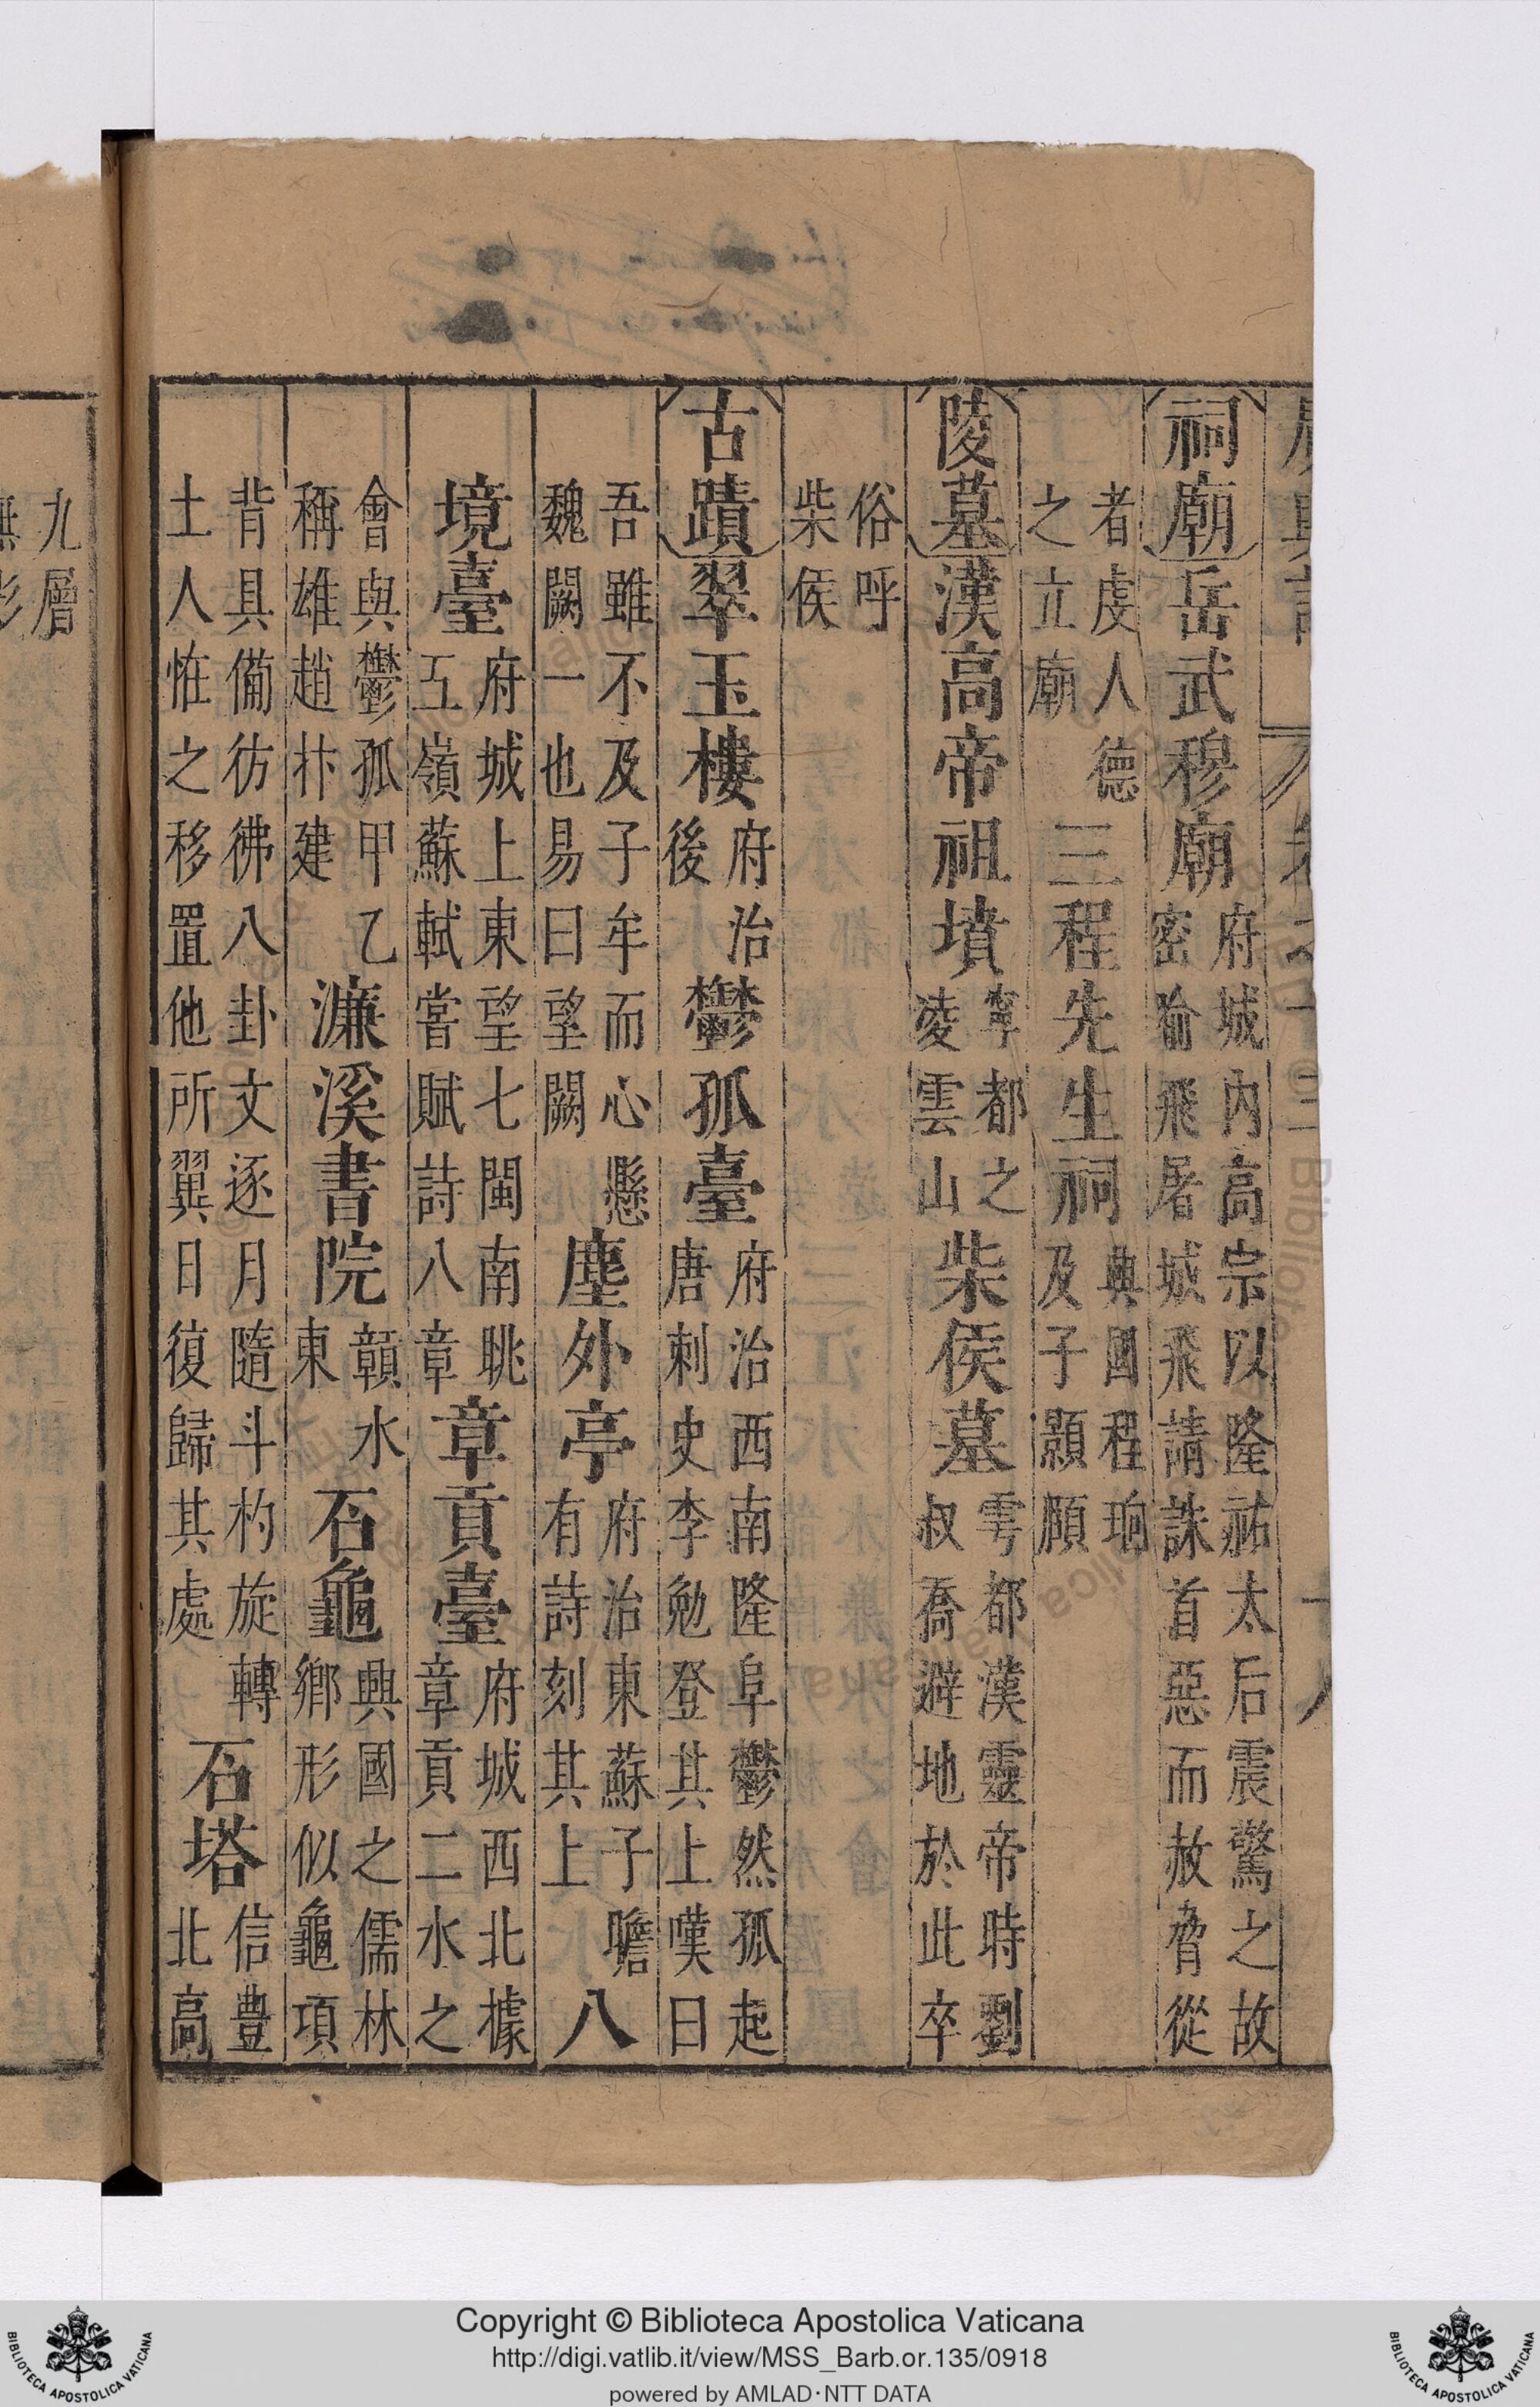 祠廟岳武穆廟府城內高宗以隆祐太后震驚之故密諭飛屠城飛請誅首惡而赦脅從
者虔人德之立廟三程先生祠興國程珦及子顥頤
陵墓漢高帝祖墳雩都之凌雲山柴侯墓雩都漢靈帝時劉叔喬避地於此卒
俗呼柴侯
古蹟翠玉樓府治後鬱孤臺府治西南隆阜鬱然孤起唐刺史李勉登其上嘆曰
吾雖不及子牟而心懸魏闕一也易曰望闕塵外亭府治東蘇子瞻有詩刻其上八
境臺府城上東望七閩南眺五嶺蘇軾嘗賦詩八章章貢臺府城西北據章貢二水之
會與鬱孤甲乙稱雄趙抃建濂溪書院贛水東石龜興國之儒林鄉形似龜項
背具備彷彿八卦文逐月隨斗杓旋轉土人恠之移置他所翼日復歸其處石塔信豐北高
九層
Copyright © Biblioteca Apostolica Vaticana
http://digi.vatlib.it/view/MSS_Barb.or.135/0918
powered by AMLAD·NTT DATA
BIBLIOTECA APOSTOLICA VATICANA
BIBLIOTECA APOSTOLICA VATICANA